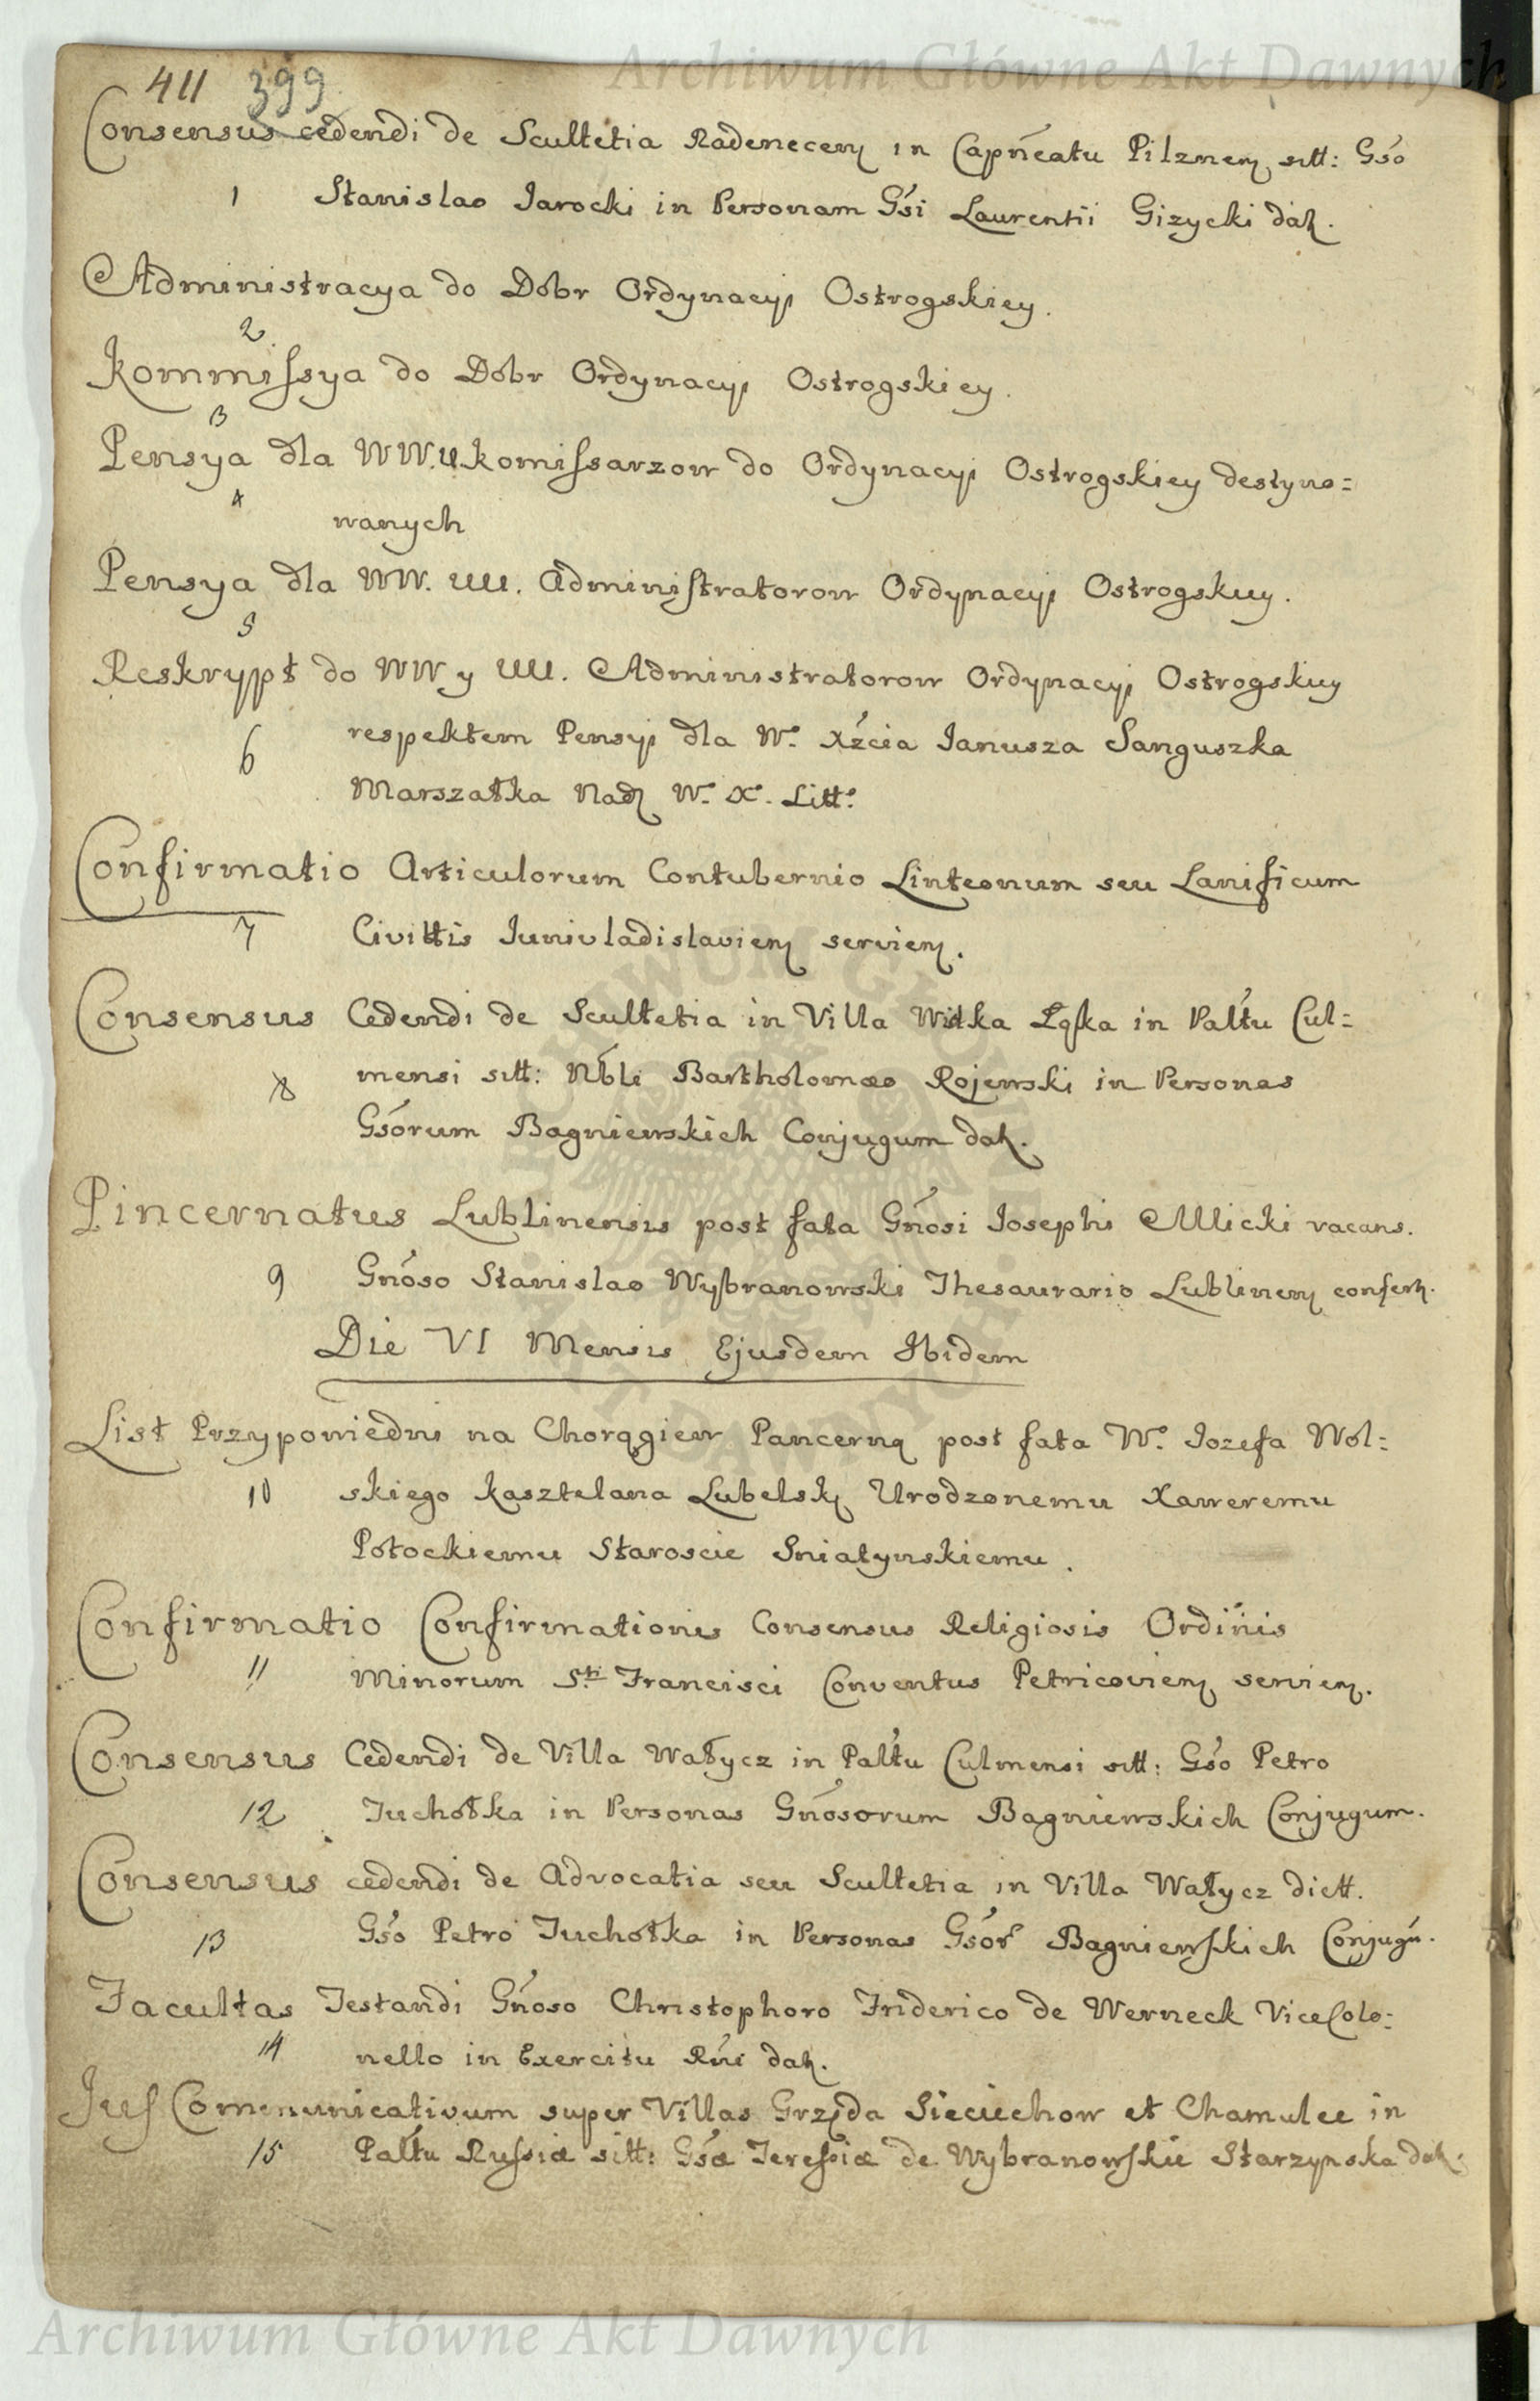 Archiwum Główne Akt Dawnych
411 399
Consensus cedendi de Scultetia Radenecen in Capneatu Pilznen sitt: Gso
1 Stanislao Jarocki in Personam Gsi Laurentii Gizycki dat.
Administracya do Dóbr Ordynacyi Ostrogskiey.
2
Kommissya do Dóbr Ordynacyi Ostrogskiey.
3
Pensya dla WW.U. Komissarzow do Ordynacyi Ostrogskiey destyno=
4 wanych
Pensya dla WW. UU. Administratorow Ordynacyi Ostrogskiey.
5
Reskrypt do WW y UU. Administratorow Ordynacyi Ostrogskiey
6 respektem Pensyi dla W. Xźcia Janusza Sanguszka
Marszałka Nad W. X. Litt.
Confirmatio Articulorum Contubernio Linteonum seu Lanificum
7 Civittis Junivladislavien servien.
Consensus Cedendi de Scultetia in Villa Wielka Łąka in Paltu Cul=
8 mensi sitt: Nbli Bartholomæo Rojewski in Personas
Gsorum Bagniewskich Conjugum dat.
Pincernatus Lublinensis post fata Gnosi Josephi Mlicki vacans.
9 Gnoso Stanislao Wybranowski Thesaurario Lublinen confert.
Die VI Mensis Ejusdem Ibidem
List Przypowiedni na Chorągiew Pancerną post fata W. Jozefa Wol=
10 skiego Kasztelana Lubelsk Urodzonemu Xaweremu
Potockiemu Staroscie Sniatynskiemu.
Confirmatio Confirmationis Consensus Religiosis Ordinis
11 Minorum Sti Francisci Conventus Petricovien servien.
Consensus Cedendi de Villa Wałycz in Paltu Culmensi sitt: Gso Petro
12 Juchołka in Personas Gnosorum Bagniewskich Conjugum.
Consensus cedendi de Advocatia seu Scultetia in Villa Wałycz dict.
13 Gso Petro Juchołka in Personas Gsor Bagniewskich Conjugu.
Facultas Testandi Gnoso Christophoro Friderico de Werneck ViceColo=
14 nello in Exercitu Rni dat.
Jus Communicativum super Villas Grzęda Sieciechow et Chamulec in
15 Paltu Russiæ sitt: Gsæ Teressiæ de Wybranowskie Starzynska dat.
Archiwum Główne Akt Dawnych